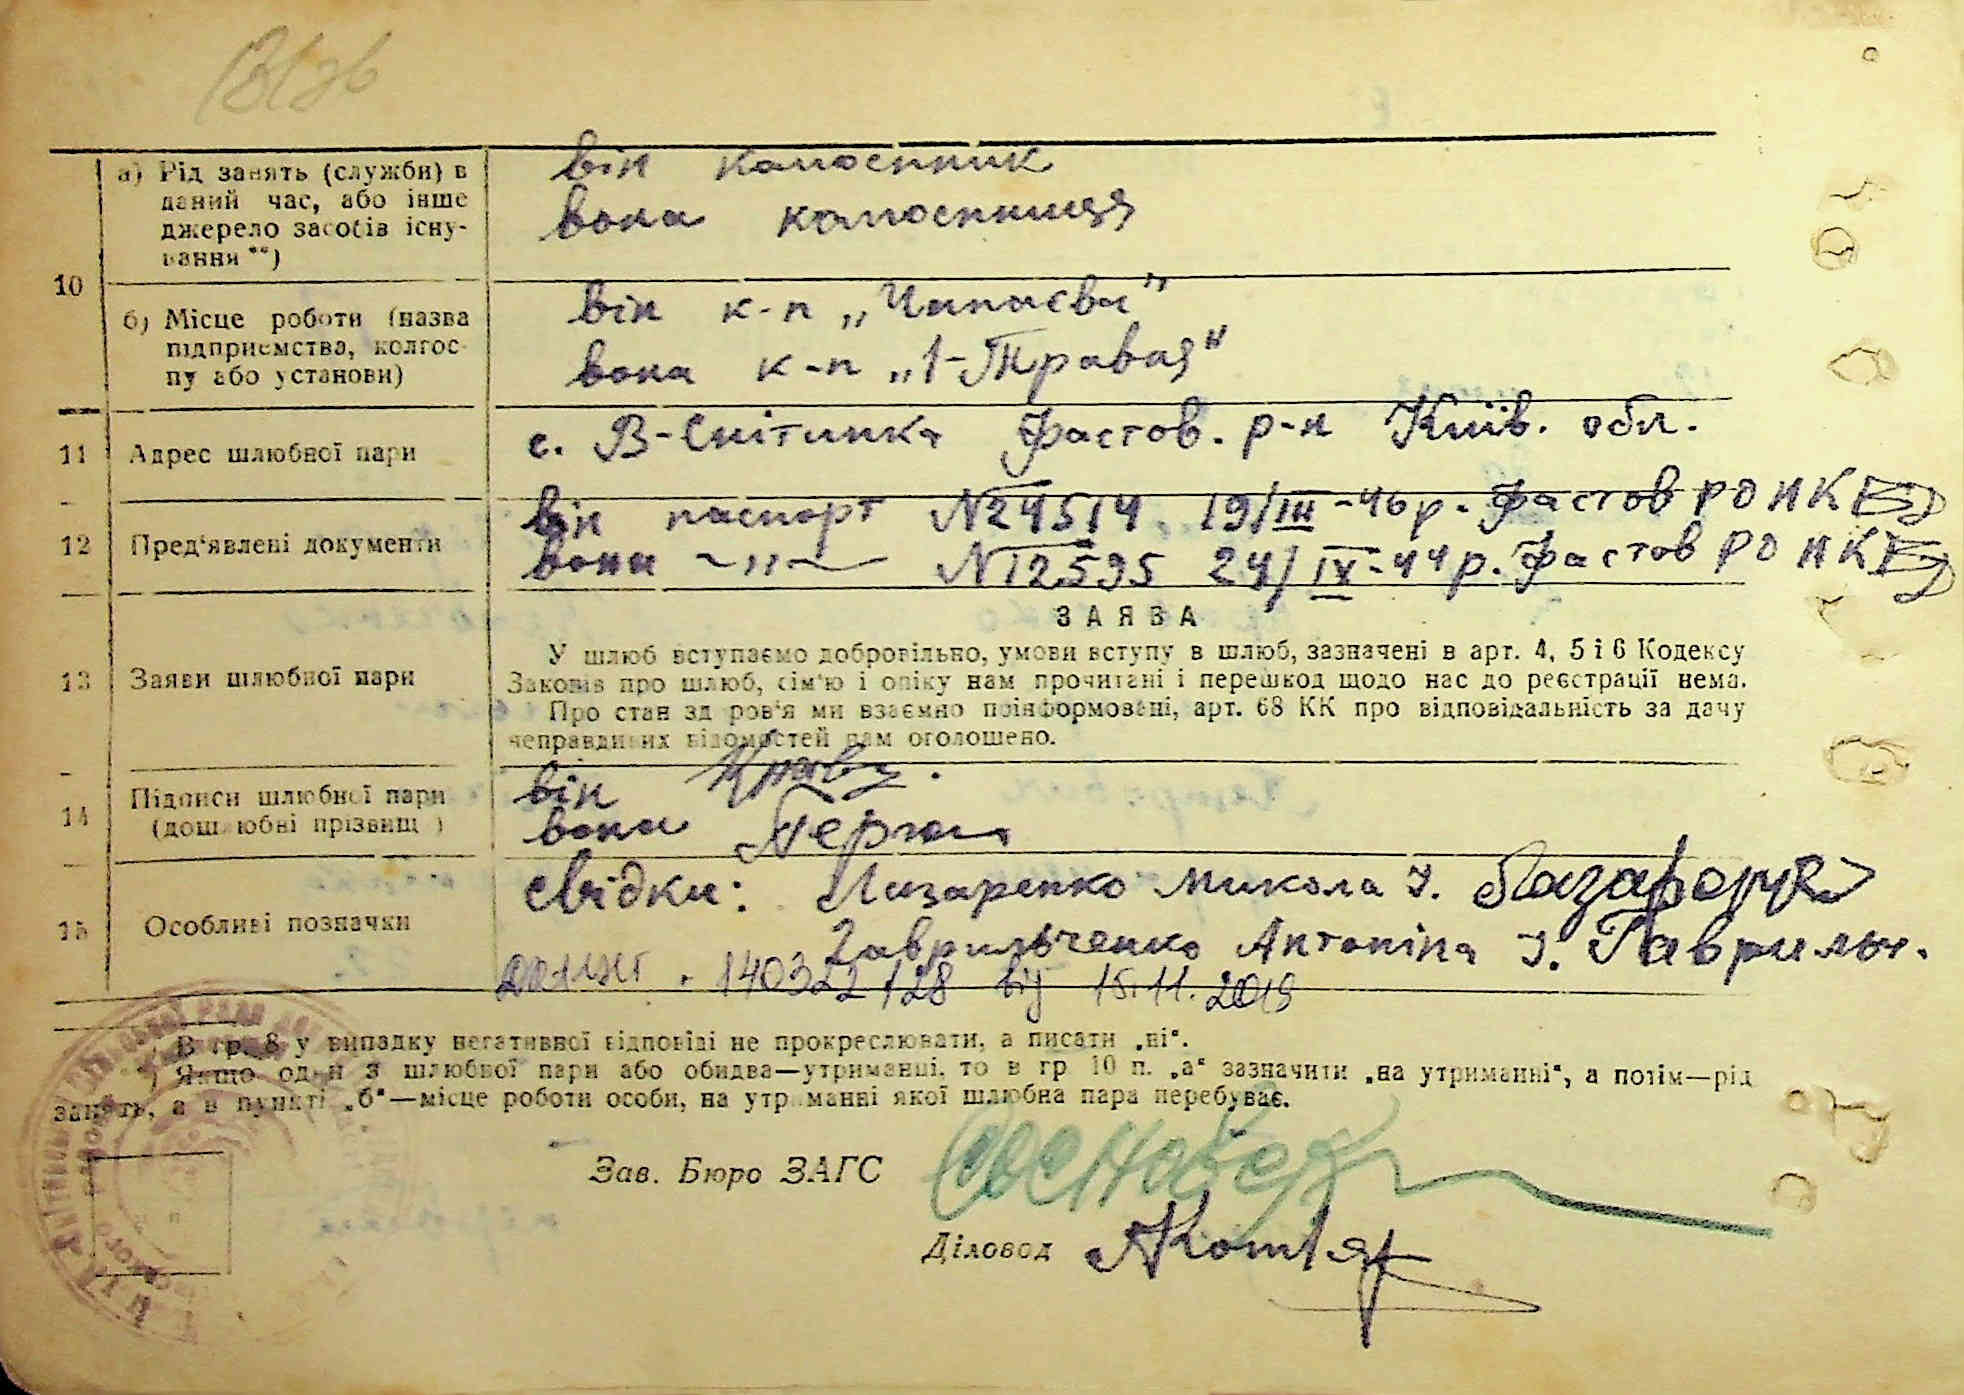 а) Рід занять (служби) в
даний час, або інше
джерело засобів існу-
вання **)
він колгоспник
вона колгоспниця
10
б) Місце роботи (назва
підприємства, колгос-
пу або установи)
він к-п „Чапаєва"
вона к-п „1-Травня"
11 Адрес шлюбної пари
с. В-Снітинка Фастов. р-н Київ. обл.
12 Пред'явлені документи
він паспорт № 24514 19/III-46 р. Фастов РО НК
вона —„— № 12595 24/IX-44 р. Фастов РО НК
ЗАЯВА
13 Заяви шлюбної пари
У шлюб вступаємо добровільно, умови вступу в шлюб, зазначені в арт. 4, 5 і 6 Кодексу
Законів про шлюб, сім'ю і опіку нам прочитані і перешкод щодо нас до реєстрації нема.
Про стан здоров'я ми взаємно поінформовані, арт. 68 КК про відповідальність за дачу
неправдивих відомостей нам оголошено.
14 Підписи шлюбної пари
(дошлюбні прізвищ )
він
вона
15 Особливі позначки
свідки: Лазаренко Микола І.
Гаврильченко Антоніна І. Гаврильч.
140322128 від 15.11.2019
В гр. 8 у випадку негативної відповіді не прокреслювати, а писати „ні".
) Якщо один з шлюбної пари або обидва—утриманці, то в гр 10 п. „а" зазначити „на утриманні", а потім—рід
занять, а в пункті „б"—місце роботи особи, на утриманні якої шлюбна пара перебуває.
Зав. Бюро ЗАГС
Діловод